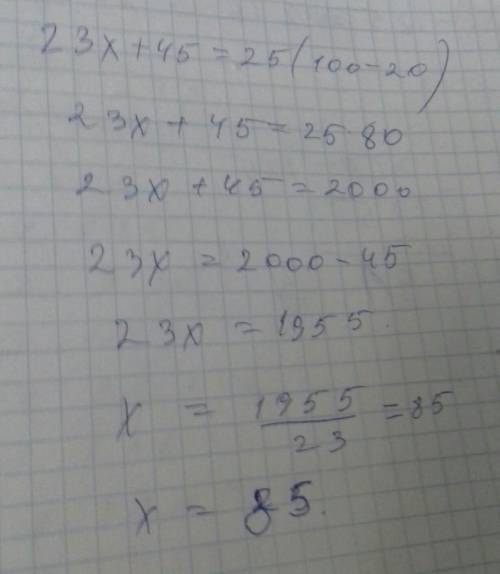 23x+45=25(100-20)
23x+45=25·80
23x+45=2000
23x=2000-45
23x=1955.
x = 1955/23 =85
x = 85.